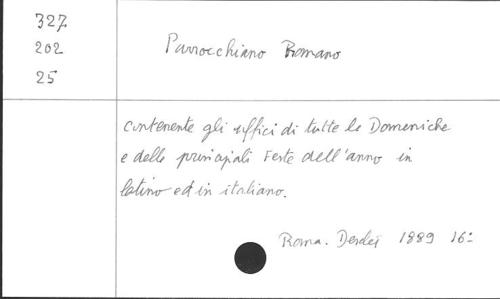 327
202
25
Parrocchiano Romano
contenente gli uffici di tutte le Domeniche
e delle principali Feste dell'anno in
latino ed in italiano.
Roma. 1889 16º